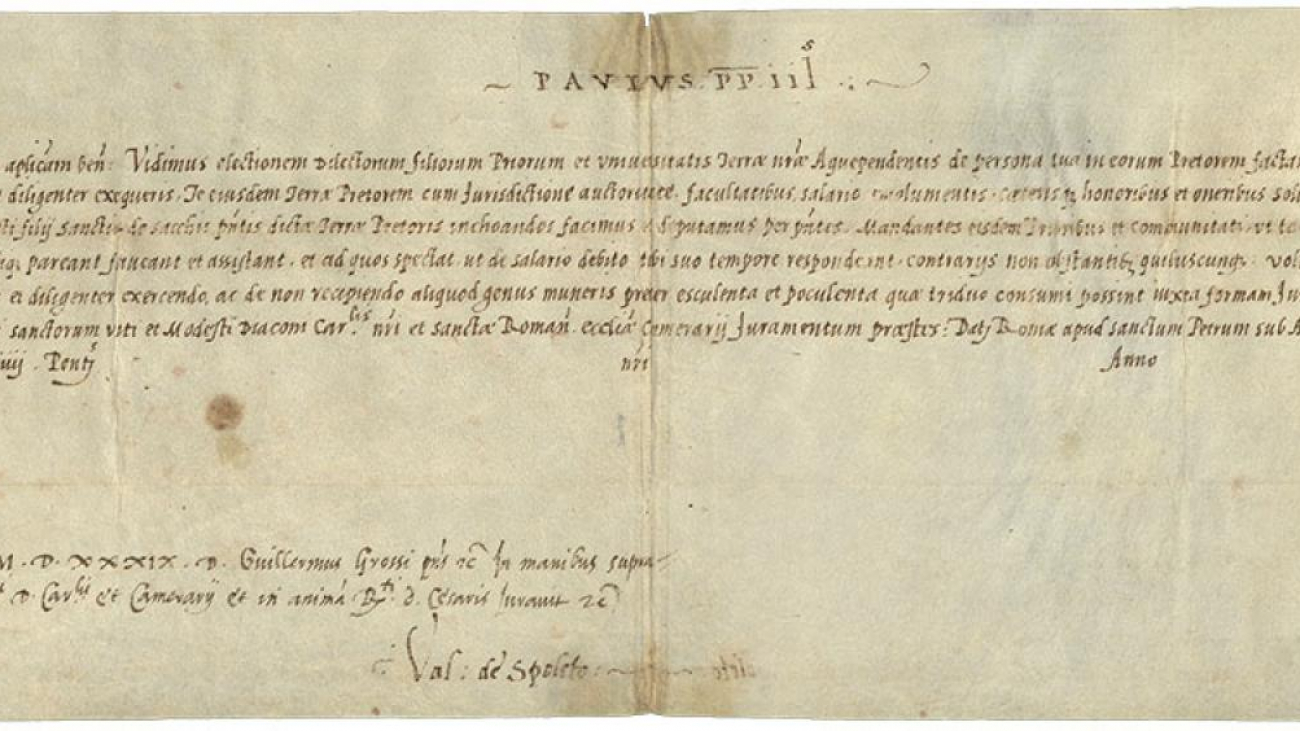 PAVLVS. PP. iii^s
aplicam ben: Vidimus electionem Dilectorum filiorum Priorum et vniuersitatis Terræ nræ Aquependentis de persona tua in eorum Pretorem factam
diligenter exequeris. Te eiusdem Terræ Pretorem cum Jurisdictione auctoritate, facultatibus, salario emolumentis ceterisq honoribus et oneribus
filij sancti de sacchis pntis dictæ Terræ Pretoris inchoandos facimus deputamus per pntes. Mandantes eisdem Prioribus et communitati, vt
pareant faueant et assistant, et ad quos spectat, ut de salario debito tibi suo tempore respondeant. contrarijs non obstantib quibuscunq.
et diligenter exercendo, ac de non recipiendo aliquod genus muneris preter esculenta et poculenta quæ triduo consumi possint iuxta formam
sanctorum viti et Modesti Diaconi Car^lis nri et sanctæ Roman. ecclia Camerarij Juramentum præstes: Dat Romæ apud sanctum Petrum sub
Pont^s nri Anno
M. D. XXXIX. D. Guillermus Grossi pns zc In manibus supra
D. Car^lis et Camerarij et in anima d. Cesaris Jurauit zc
Val: de Spoleto